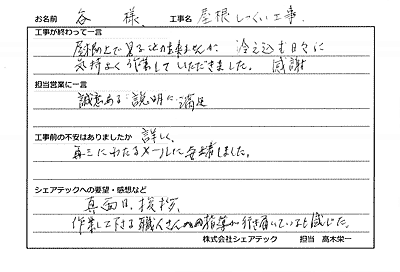 お名前 谷 様 工事名 屋根しっくい工事.
工事が終わって一言
屋根の上で見る決め来ませんが、冷え込む日々に
気持よく作業していただきました。感謝
担当営業に一言
誠意ある説明に満足
工事前の不安はありましたか 詳しく、
再三にわたるメールに安堵しました。
シェアテックへの要望・感想など
真面目、挨拶、
作業して下さる職人さんへの指導が行き届いていると感じた。
株式会社シェアテック 担当 高木栄一